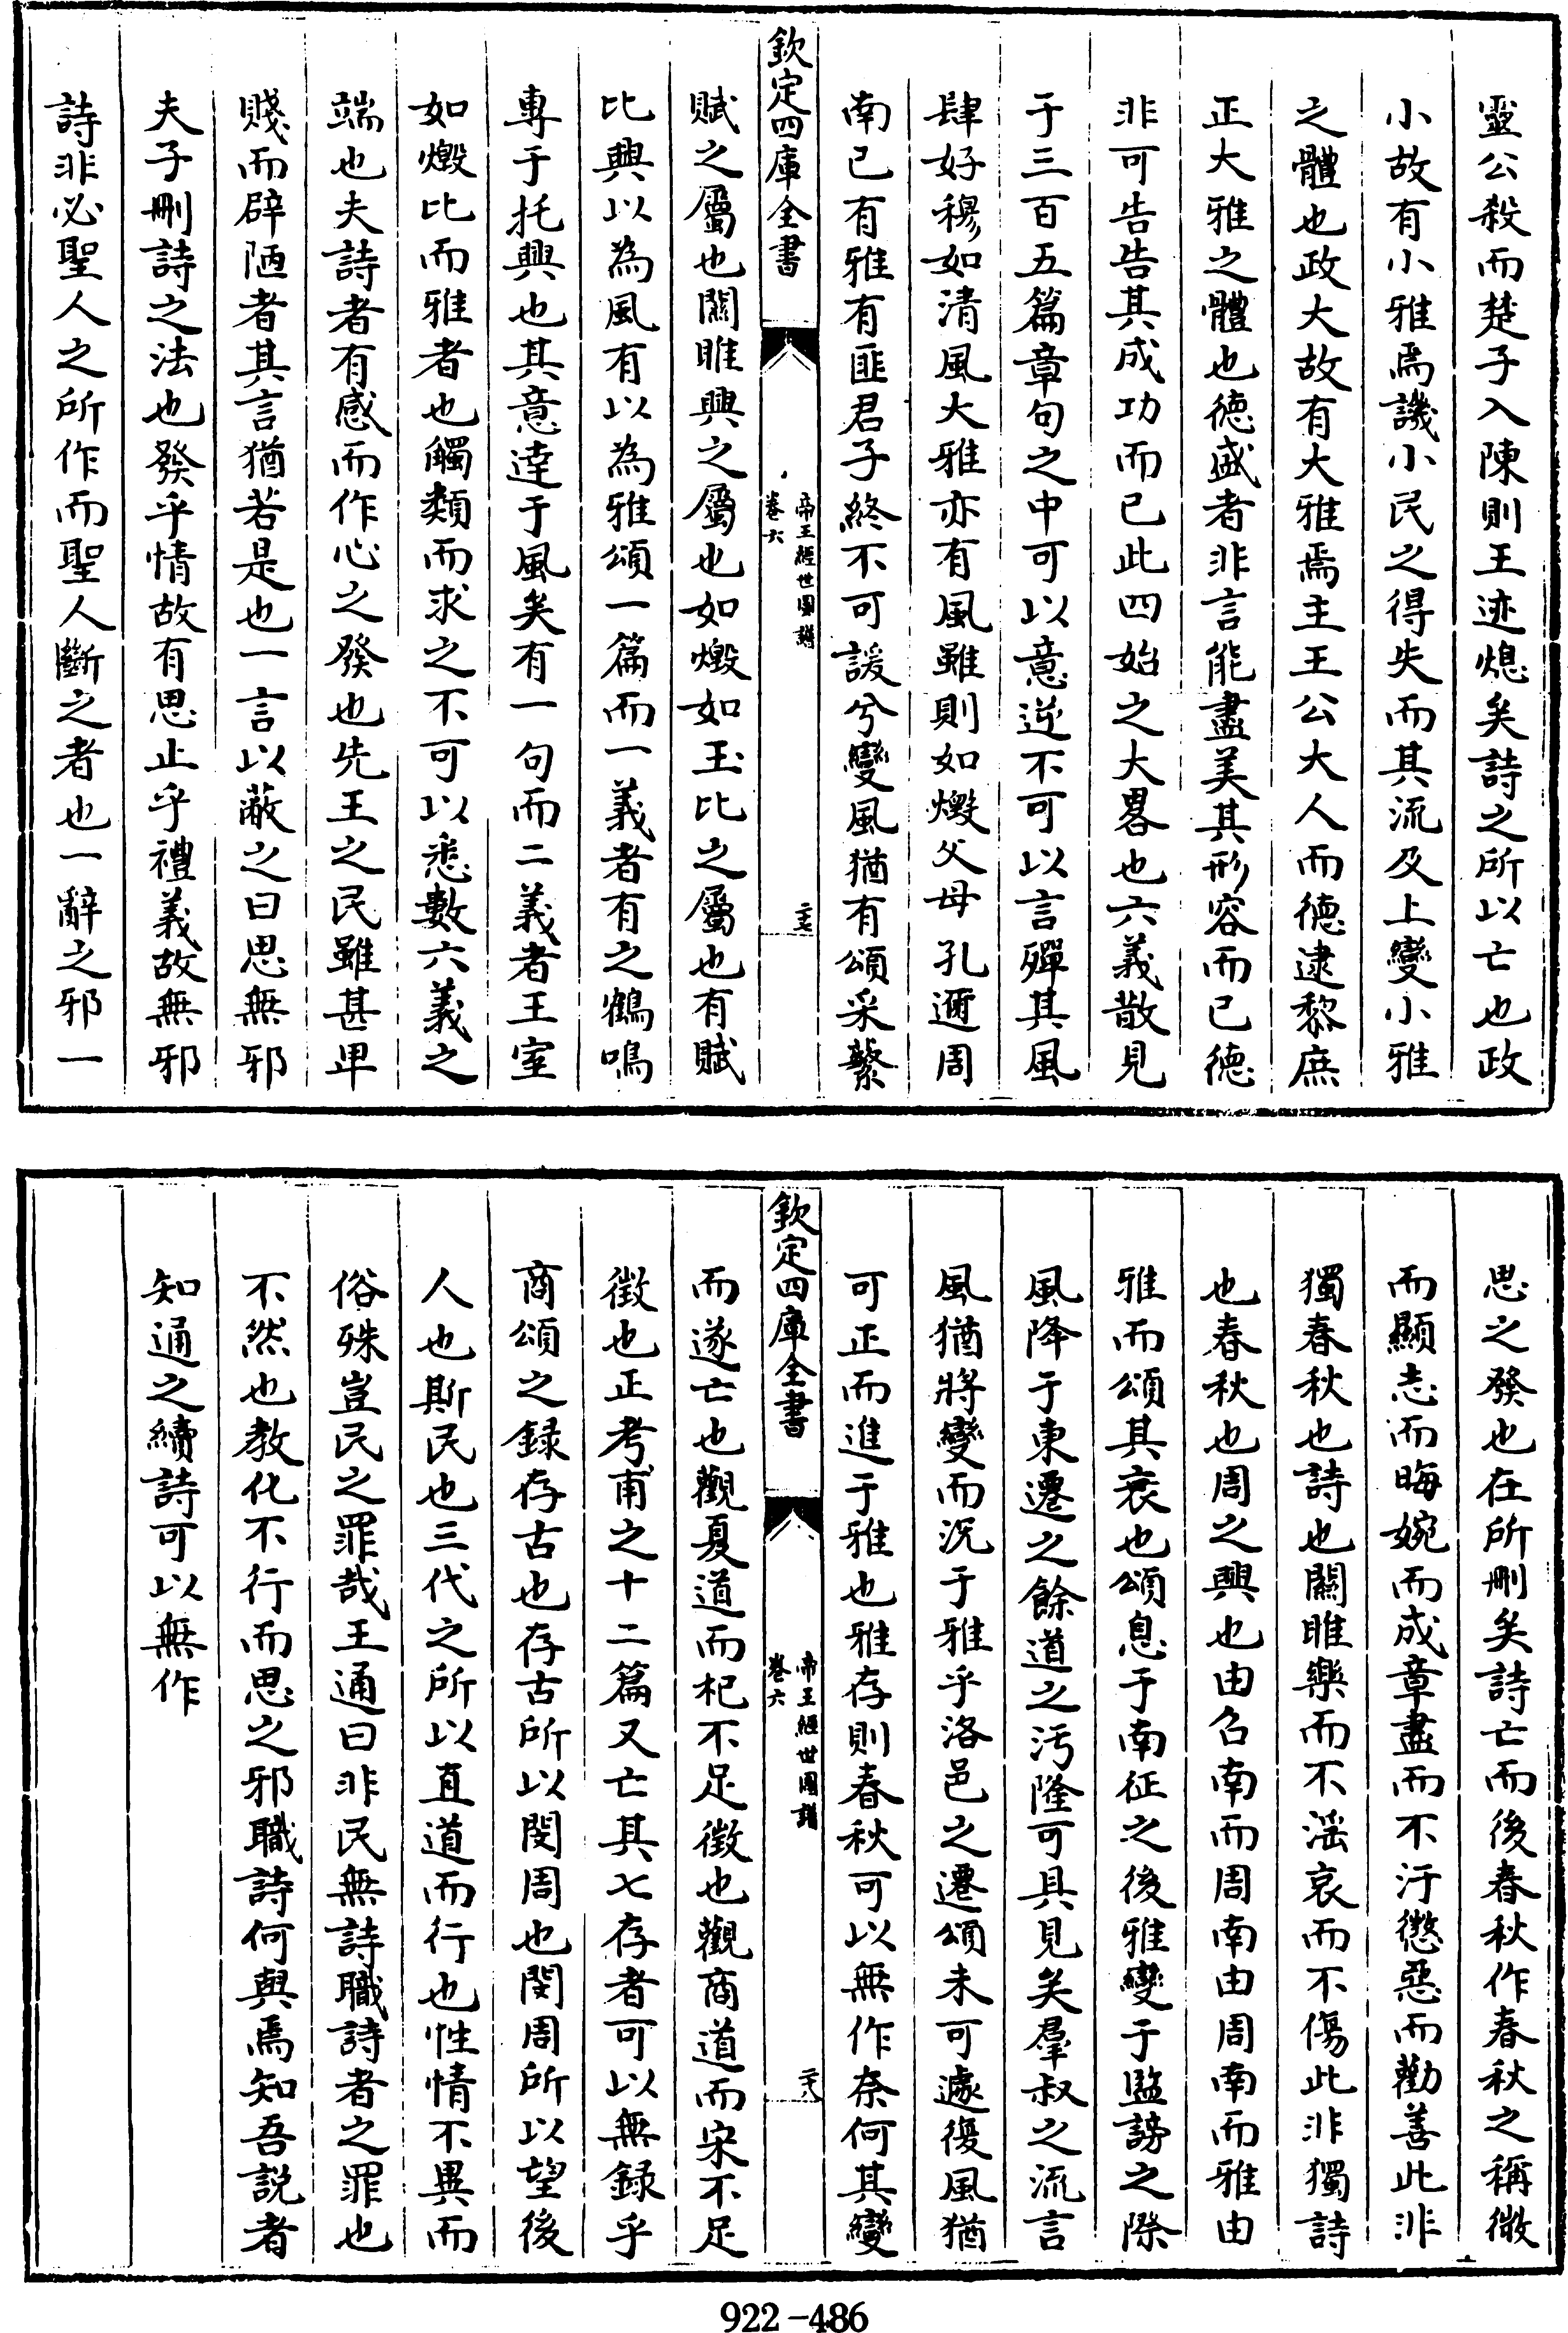 靈公殺而楚子入陳則王迹熄矣詩之所以亡也政
小故有小雅焉譏小民之得失而其流及上變小雅
之體也政大故有大雅焉主王公大人而德逮黎庶
正大雅之體也德盛者非言能盡美其形容而已德
非可告告其成功而已此四始之大畧也六義散見
于三百五篇章句之中可以意逆不可以言殫其風
肆好穆如清風大雅亦有風雖則如燬父母孔邇周
南已有雅有匪君子終不可諼兮變風猶有頌采蘩
欽定四庫全書
帝王經世圖譜
卷六
二十七
賦之屬也關雎興之屬也如燬如玉比之屬也有賦
比興以為風有以為雅頌一篇而一義者有之鶴鳴
專于托興也其意達于風矣有一句而二義者王室
如燬比而雅者也觸類而求之不可以悉數六義之
端也夫詩者有感而作心之發也先王之民雖甚卑
賤而辟陋者其言猶若是也一言以蔽之曰思無邪
夫子刪詩之法也發乎情故有思止乎禮義故無邪
詩非必聖人之所作而聖人斷之者也一辭之邪一
思之發也在所刪矣詩亡而後春秋作春秋之稱微
而顯志而晦婉而成章盡而不汙懲惡而勸善此非
獨春秋也詩也關雎樂而不淫哀而不傷此非獨詩
也春秋也周之興也由召南而周南由周南而雅由
雅而頌其衰也頌息于南征之後雅變于監謗之際
風降于東遷之餘道之污隆可具見矣羣叔之流言
風猶將變而況于雅乎洛邑之遷頌未可遽復風猶
可正而進于雅也雅存則春秋可以無作奈何其變
欽定四庫全書
帝王經世圖譜
卷六
二十八
而遂亡也觀夏道而杞不足徵也觀商道而宋不足
徵也正考甫之十二篇又亡其七存者可以無録乎
商頌之録存古也存古所以閔周也閔周所以望後
人也斯民也三代之所以直道而行也性情不異而
俗殊豈民之罪哉王通曰非民無詩職詩者之罪也
不然也教化不行而思之邪職詩何與焉知吾説者
知通之續詩可以無作
922-486